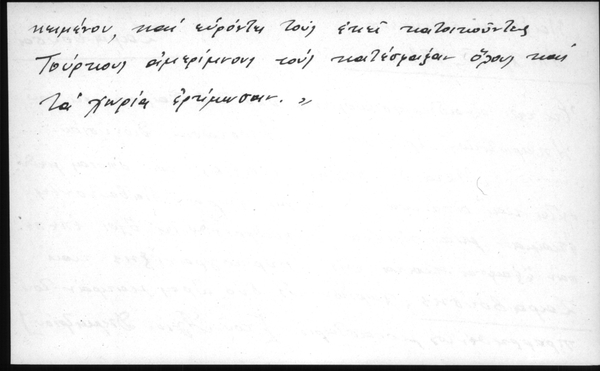 κειμένου, καί εὑρόντες τούς ἐκεῖ κατοικοῦντας
Τούρκους ἀμερίμνους τούς κατέσφαξαν ὅλους καί
τά χωρία ἐρήμωσαν. »